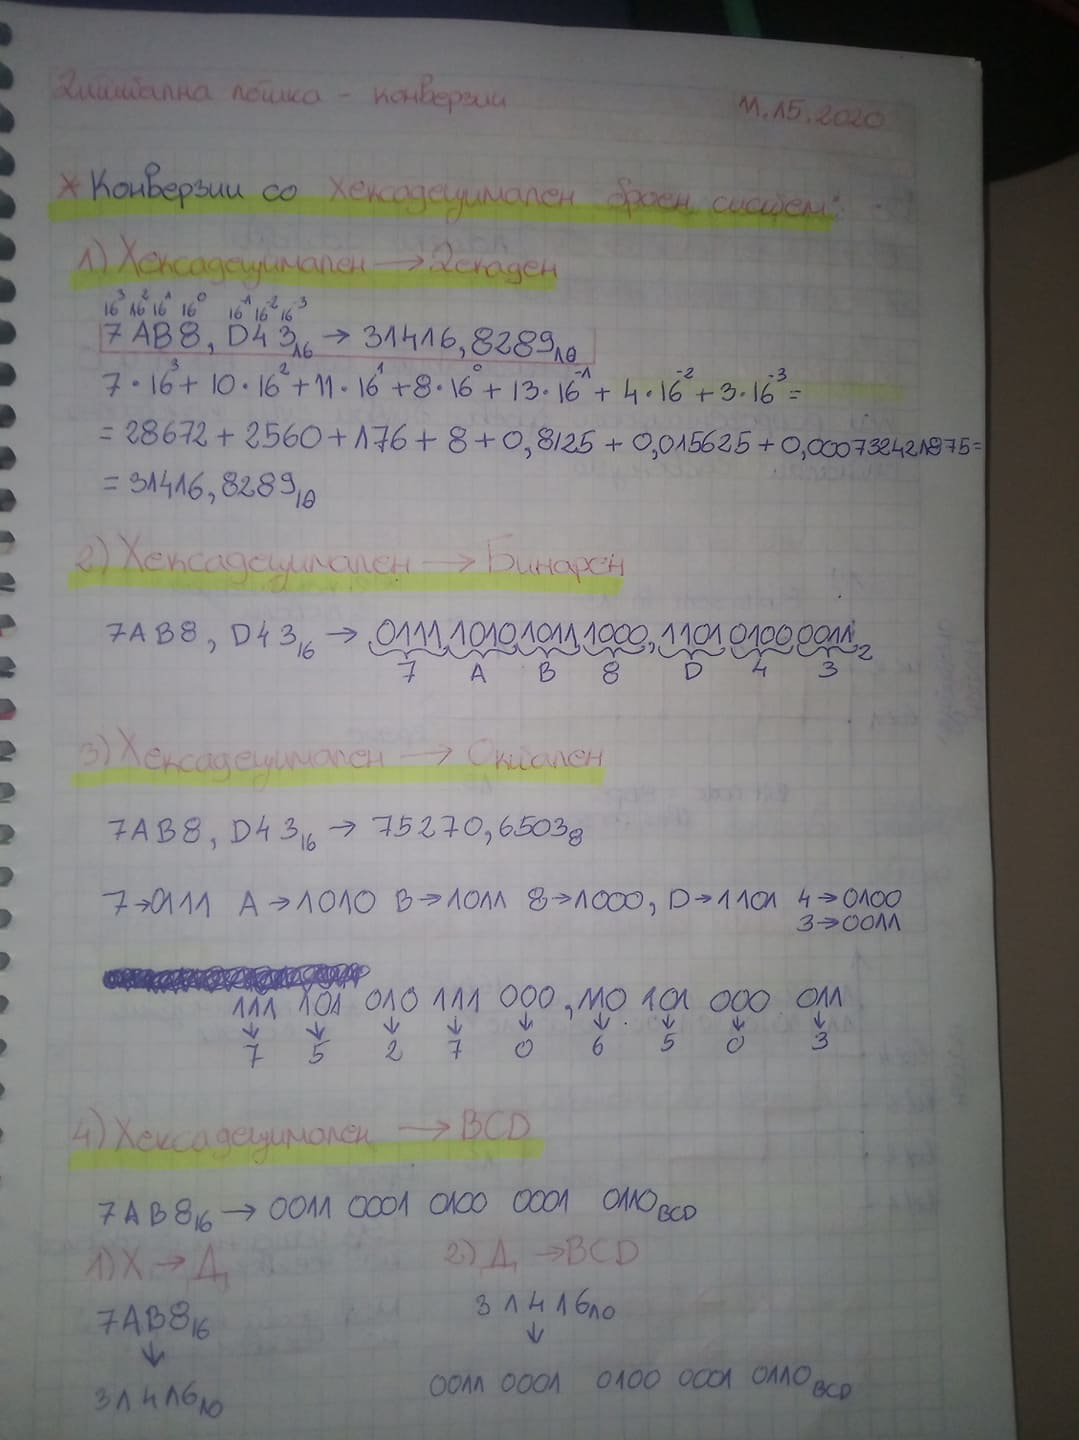 Дигитална логика - конверзии 11.15.2020
* Конверзии со Хексадецимален броен систем:
1) Хексадецимален → Декаден
16³ 16² 16¹ 16⁰ 16⁻¹ 16⁻² 16⁻³
7AB8,D43₁₆ → 31416,8289₁₀
7·16³ + 10·16² + 11·16¹ + 8·16⁰ + 13·16⁻¹ + 4·16⁻² + 3·16⁻³ =
= 28672 + 2560 + 176 + 8 + 0,8125 + 0,015625 + 0,000732421875 =
= 31416,8289₁₀
2) Хексадецимален → Бинарен
7AB8,D43₁₆ → 0111 1010 1011 1000, 1101 0100 0011₂
7 A B 8 D 4 3
3) Хексадецимален → Октален
7AB8,D43₁₆ → 75270,6503₈
7→0111 A→1010 B→1011 8→1000, D→1101 4→0100
3→0011
111 101 010 111 000, 110 101 000 011
↓ ↓ ↓ ↓ ↓ ↓ ↓ ↓ ↓
7 5 2 7 0 6 5 0 3
4) Хексадецимален → BCD
7AB8₁₆ → 0011 0001 0100 0001 0110 BCD
1) Х → Д 2) Д → BCD
7AB8₁₆ 31416₁₀
↓ ↓
31416₁₀ 0011 0001 0100 0001 0110 BCD